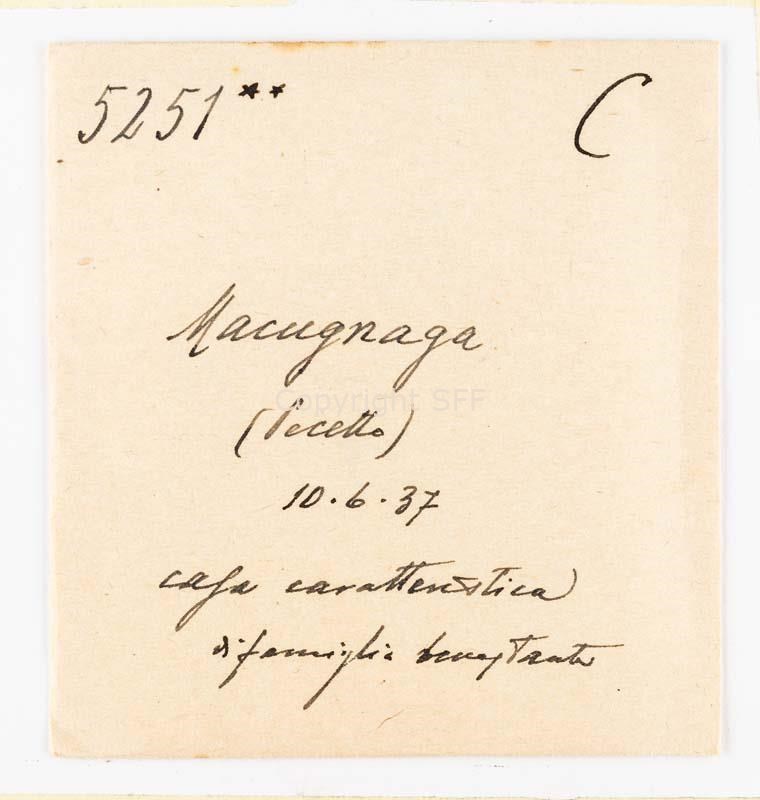 5251** C
Macugnaga
Copyright SFF
(Pecetto)
10.6.37
casa caratteristica
di famiglia benestante